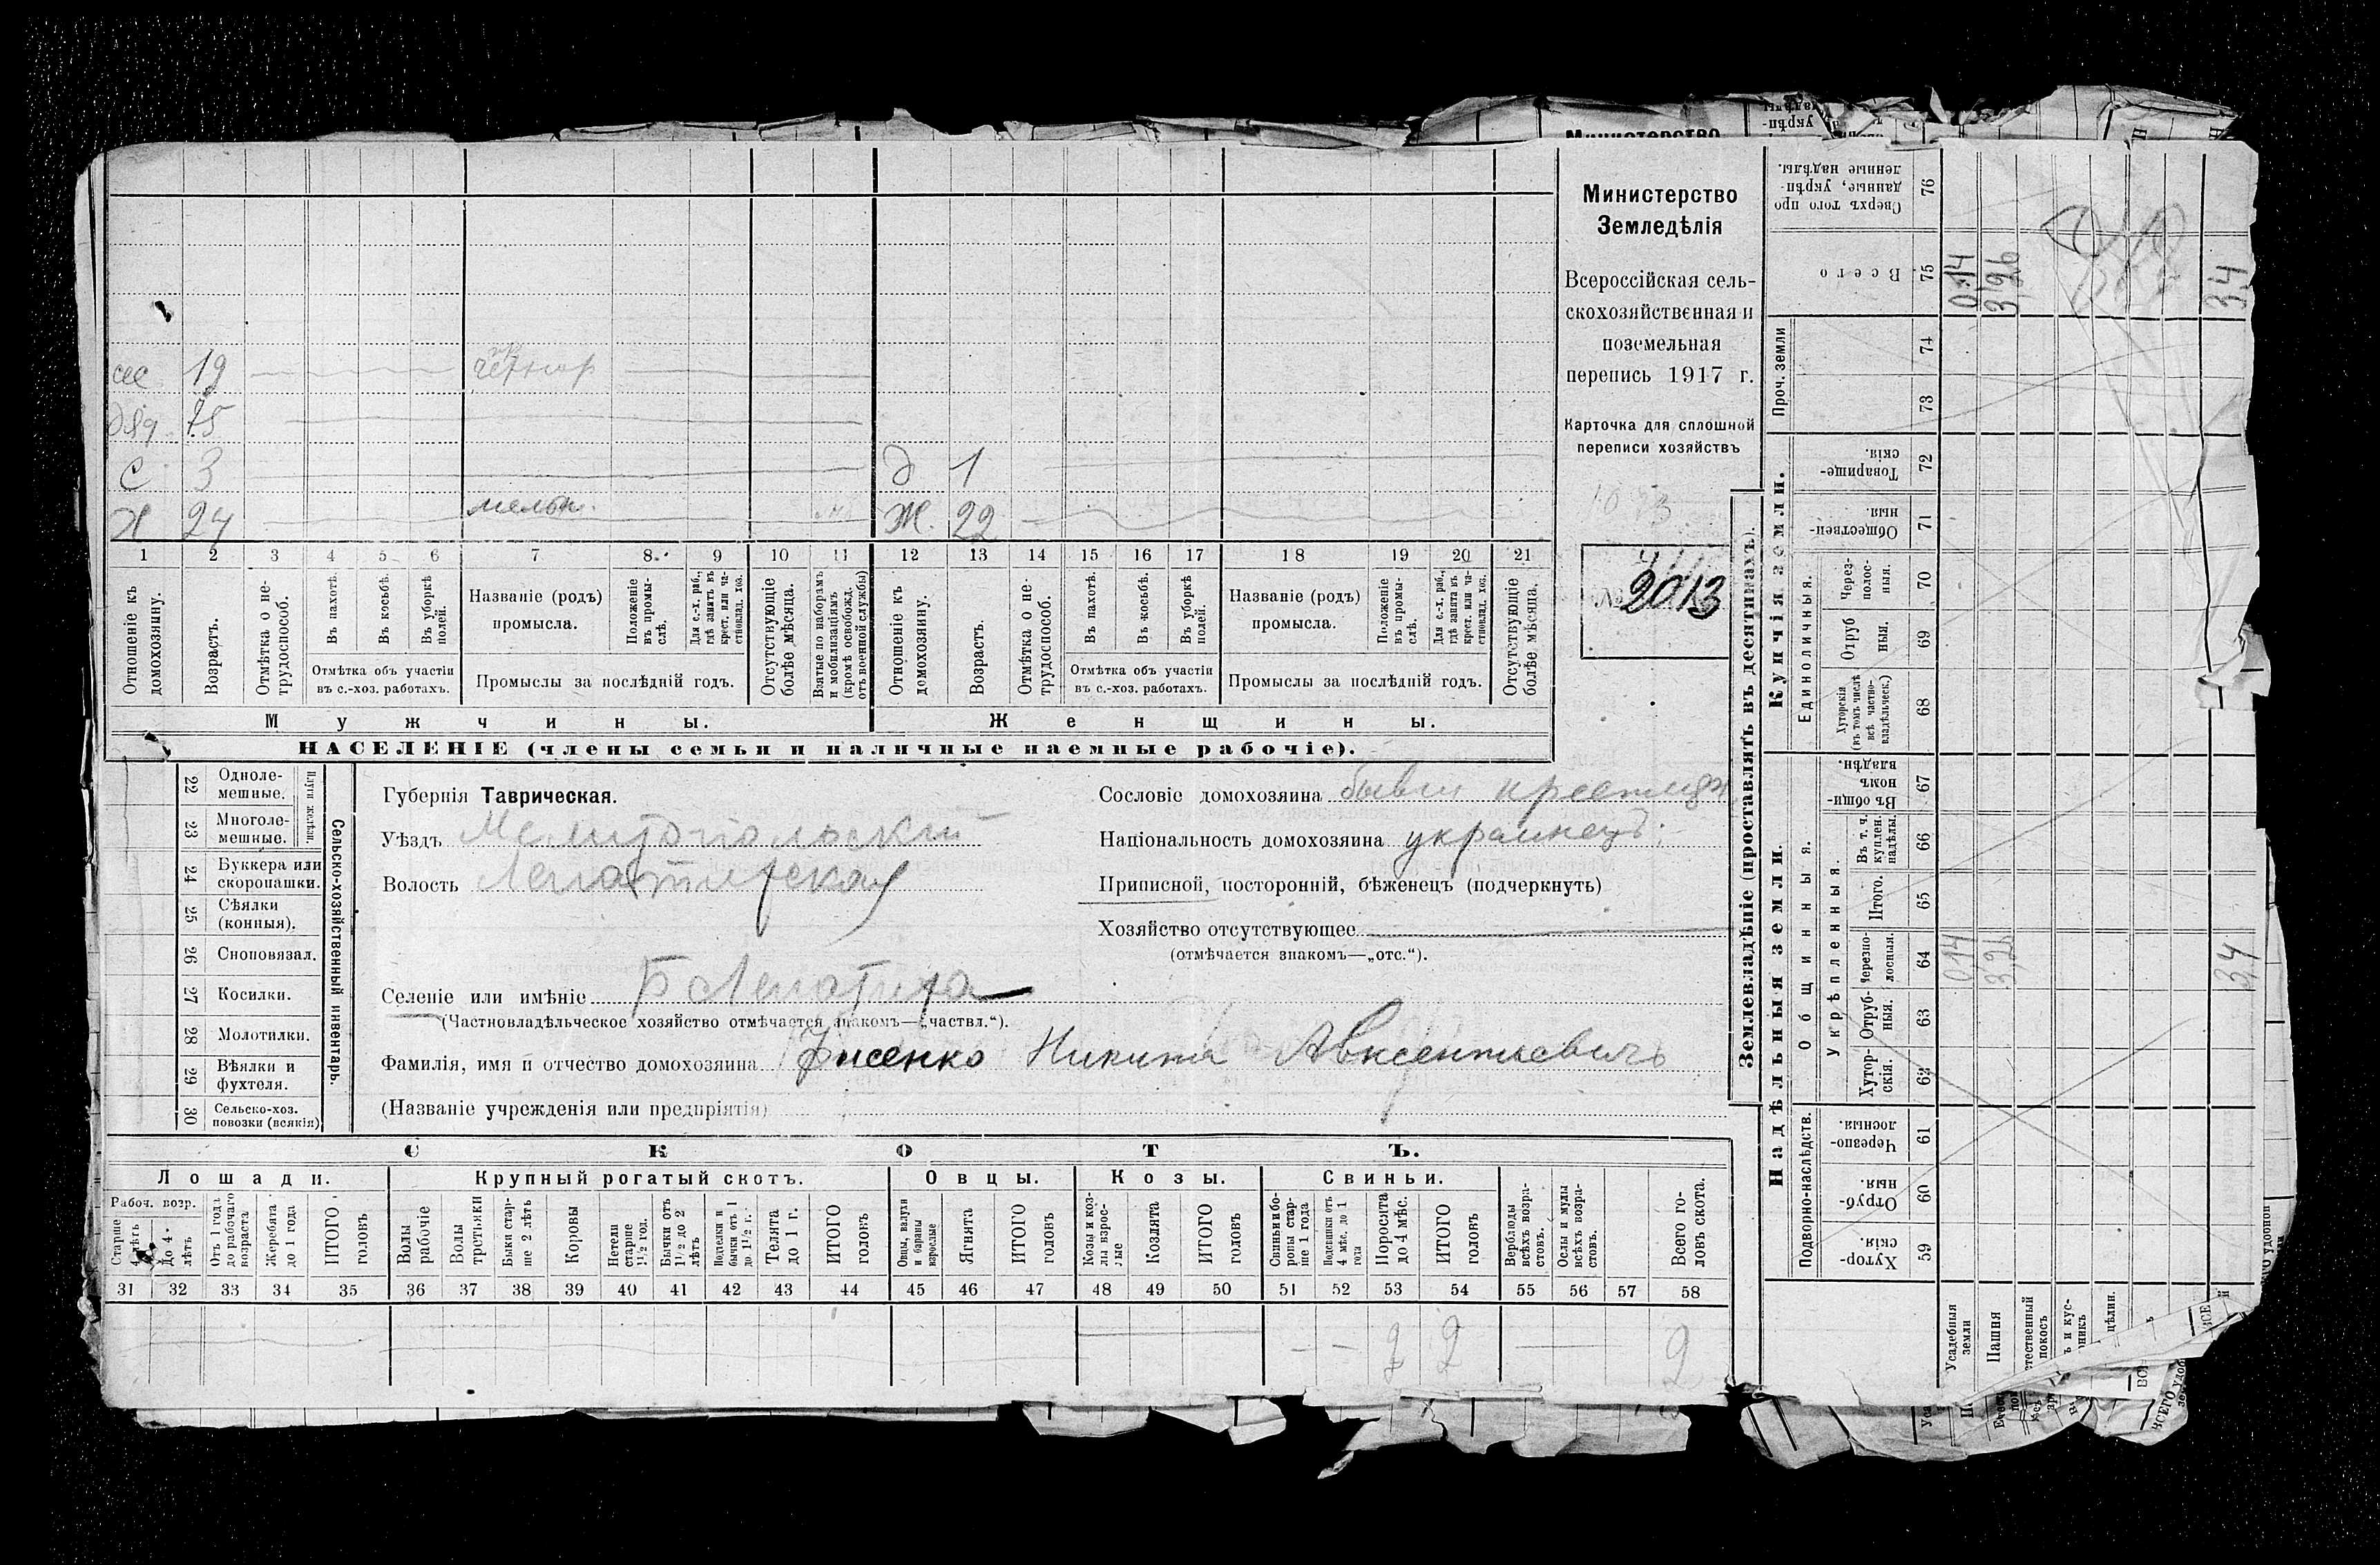 Министерство
Земледѣлія
Всероссійская сель-
скохозяйственная и
поземельная
перепись 1917 г.
Карточка для сплошной
переписи хозяйствъ
№ 2013
19
75
с 3
д 1
Х 24 мельн.
Ж. 22
1 2 3 4 5 6 7 8 9 10 11 12 13 14 15 16 17 18 19 20 21
Отношеніе къ домохозяину.
Возрастъ.
Отмѣтка о нетрудоспособ.
Въ пахотѣ.
Въ косьбѣ.
Въ уборкѣ полей.
Отмѣтка объ участіи
въ с.-хоз. работахъ.
Названіе (родъ)
промысла.
Положеніе въ промыслѣ.
Для с.-х. раб., гдѣ занятъ въ крест. или частновлад. хоз.
Промыслы за послѣдній годъ.
Отсутствующіе болѣе мѣсяца.
Взятые по наборамъ и мобилизаціямъ (кромѣ освобожд. отъ военной службы)
Отношеніе къ домохозяину.
Возрастъ.
Отмѣтка о нетрудоспособ.
Въ пахотѣ.
Въ косьбѣ.
Въ уборкѣ полей.
Отмѣтка объ участіи
въ с.-хоз. работахъ.
Названіе (родъ)
промысла.
Положеніе въ промыслѣ.
Для с.-х. раб., гдѣ занята въ крест. или частновлад. хоз.
Промыслы за послѣдній годъ.
Отсутствующіе болѣе мѣсяца.
Мужчины.
Женщины.
НАСЕЛЕНІЕ (члены семьи и наличные наемные рабочіе).
Сельско-хозяйственный инвентарь.
22 Одноле-
мешные.
23 Многоле-
мешные.
24 Буккера или
скоропашки.
25 Сѣялки
(конныя).
26 Сноповязал.
27 Косилки.
28 Молотилки.
29 Вѣялки и
фухтеля.
30 Сельско-хоз.
повозки (всякія)
Губернія Таврическая.
Уѣздъ Мелитопольский
Волость Лепатихская
Селеніе или имѣніе Б Лепатиха
(Частновладѣльческое хозяйство отмѣчается знакомъ—„частвл.“).
Фамилія, имя и отчество домохозяина Фисенко Никита Авксентьевичъ
(Названіе учрежденія или предпріятія)
Сословіе домохозяина бывш крестьян
Національность домохозяина украинецъ:
Приписной, посторонній, бѣженецъ (подчеркнуть)
Хозяйство отсутствующее
(отмѣчается знакомъ—„отс.“).
СКОТЪ.
Лошади.
Крупный рогатый скотъ.
Овцы.
Козы.
Свиньи.
Рабоч. возр.
Старше 4 лѣтъ
До 4 лѣтъ
Отъ 1 года до рабочаго возраста
Жеребята до 1 года
ИТОГО головъ
Волы рабочіе
Волы третьяки
Быки старше 2 лѣтъ
Коровы
Нетели старше 1½ год.
Бычки отъ 1½ до 2 лѣтъ
Подтелки и бычки отъ 1 до 1½ г.
Телята до 1 г.
ИТОГО головъ
Овцы, валухи и бараны взрослые
Ягнята
ИТОГО головъ
Козы и козлы взрослые
Козлята
ИТОГО головъ
Свиньи и боровы старше 1 года
Подсвинки отъ 4 мѣс. до 1 года
Поросята до 4 мѣс.
ИТОГО головъ
Верблюды всѣхъ возрастовъ.
Ослы и мулы всѣхъ возрастовъ.
Всего головъ скота.
31 32 33 34 35 36 37 38 39 40 41 42 43 44 45 46 47 48 49 50 51 52 53 54 55 56 57 58
2 2 2
Землевладѣніе (проставлять въ десятинахъ).
Надѣльныя земли.
Купчія земли.
Проч. земли
Подворно-наслѣдств.
Общинныя.
Укрѣпленныя.
Единоличныя.
Хуторскія. 59
Отрубныя. 60
Черезполосныя. 61
Хуторскія. 62
Отрубныя. 63
Черезполосныя. 64
Итого. 65
Въ т. ч. куплен. надѣлы. 66
Въ общинномъ владѣн. 67
Хуторскія (въ томъ числѣ всѣ частновладѣльческ.) 68
Отрубныя. 69
Черезполосныя. 70
Общественныя. 71
Товарищескія. 72
73
74
Всего 75
Сверхъ того проданные, укрѣпленные надѣлы. 76
Усадебныя земли
Пашня
0.14
3,26
3,4
0.14
3,4